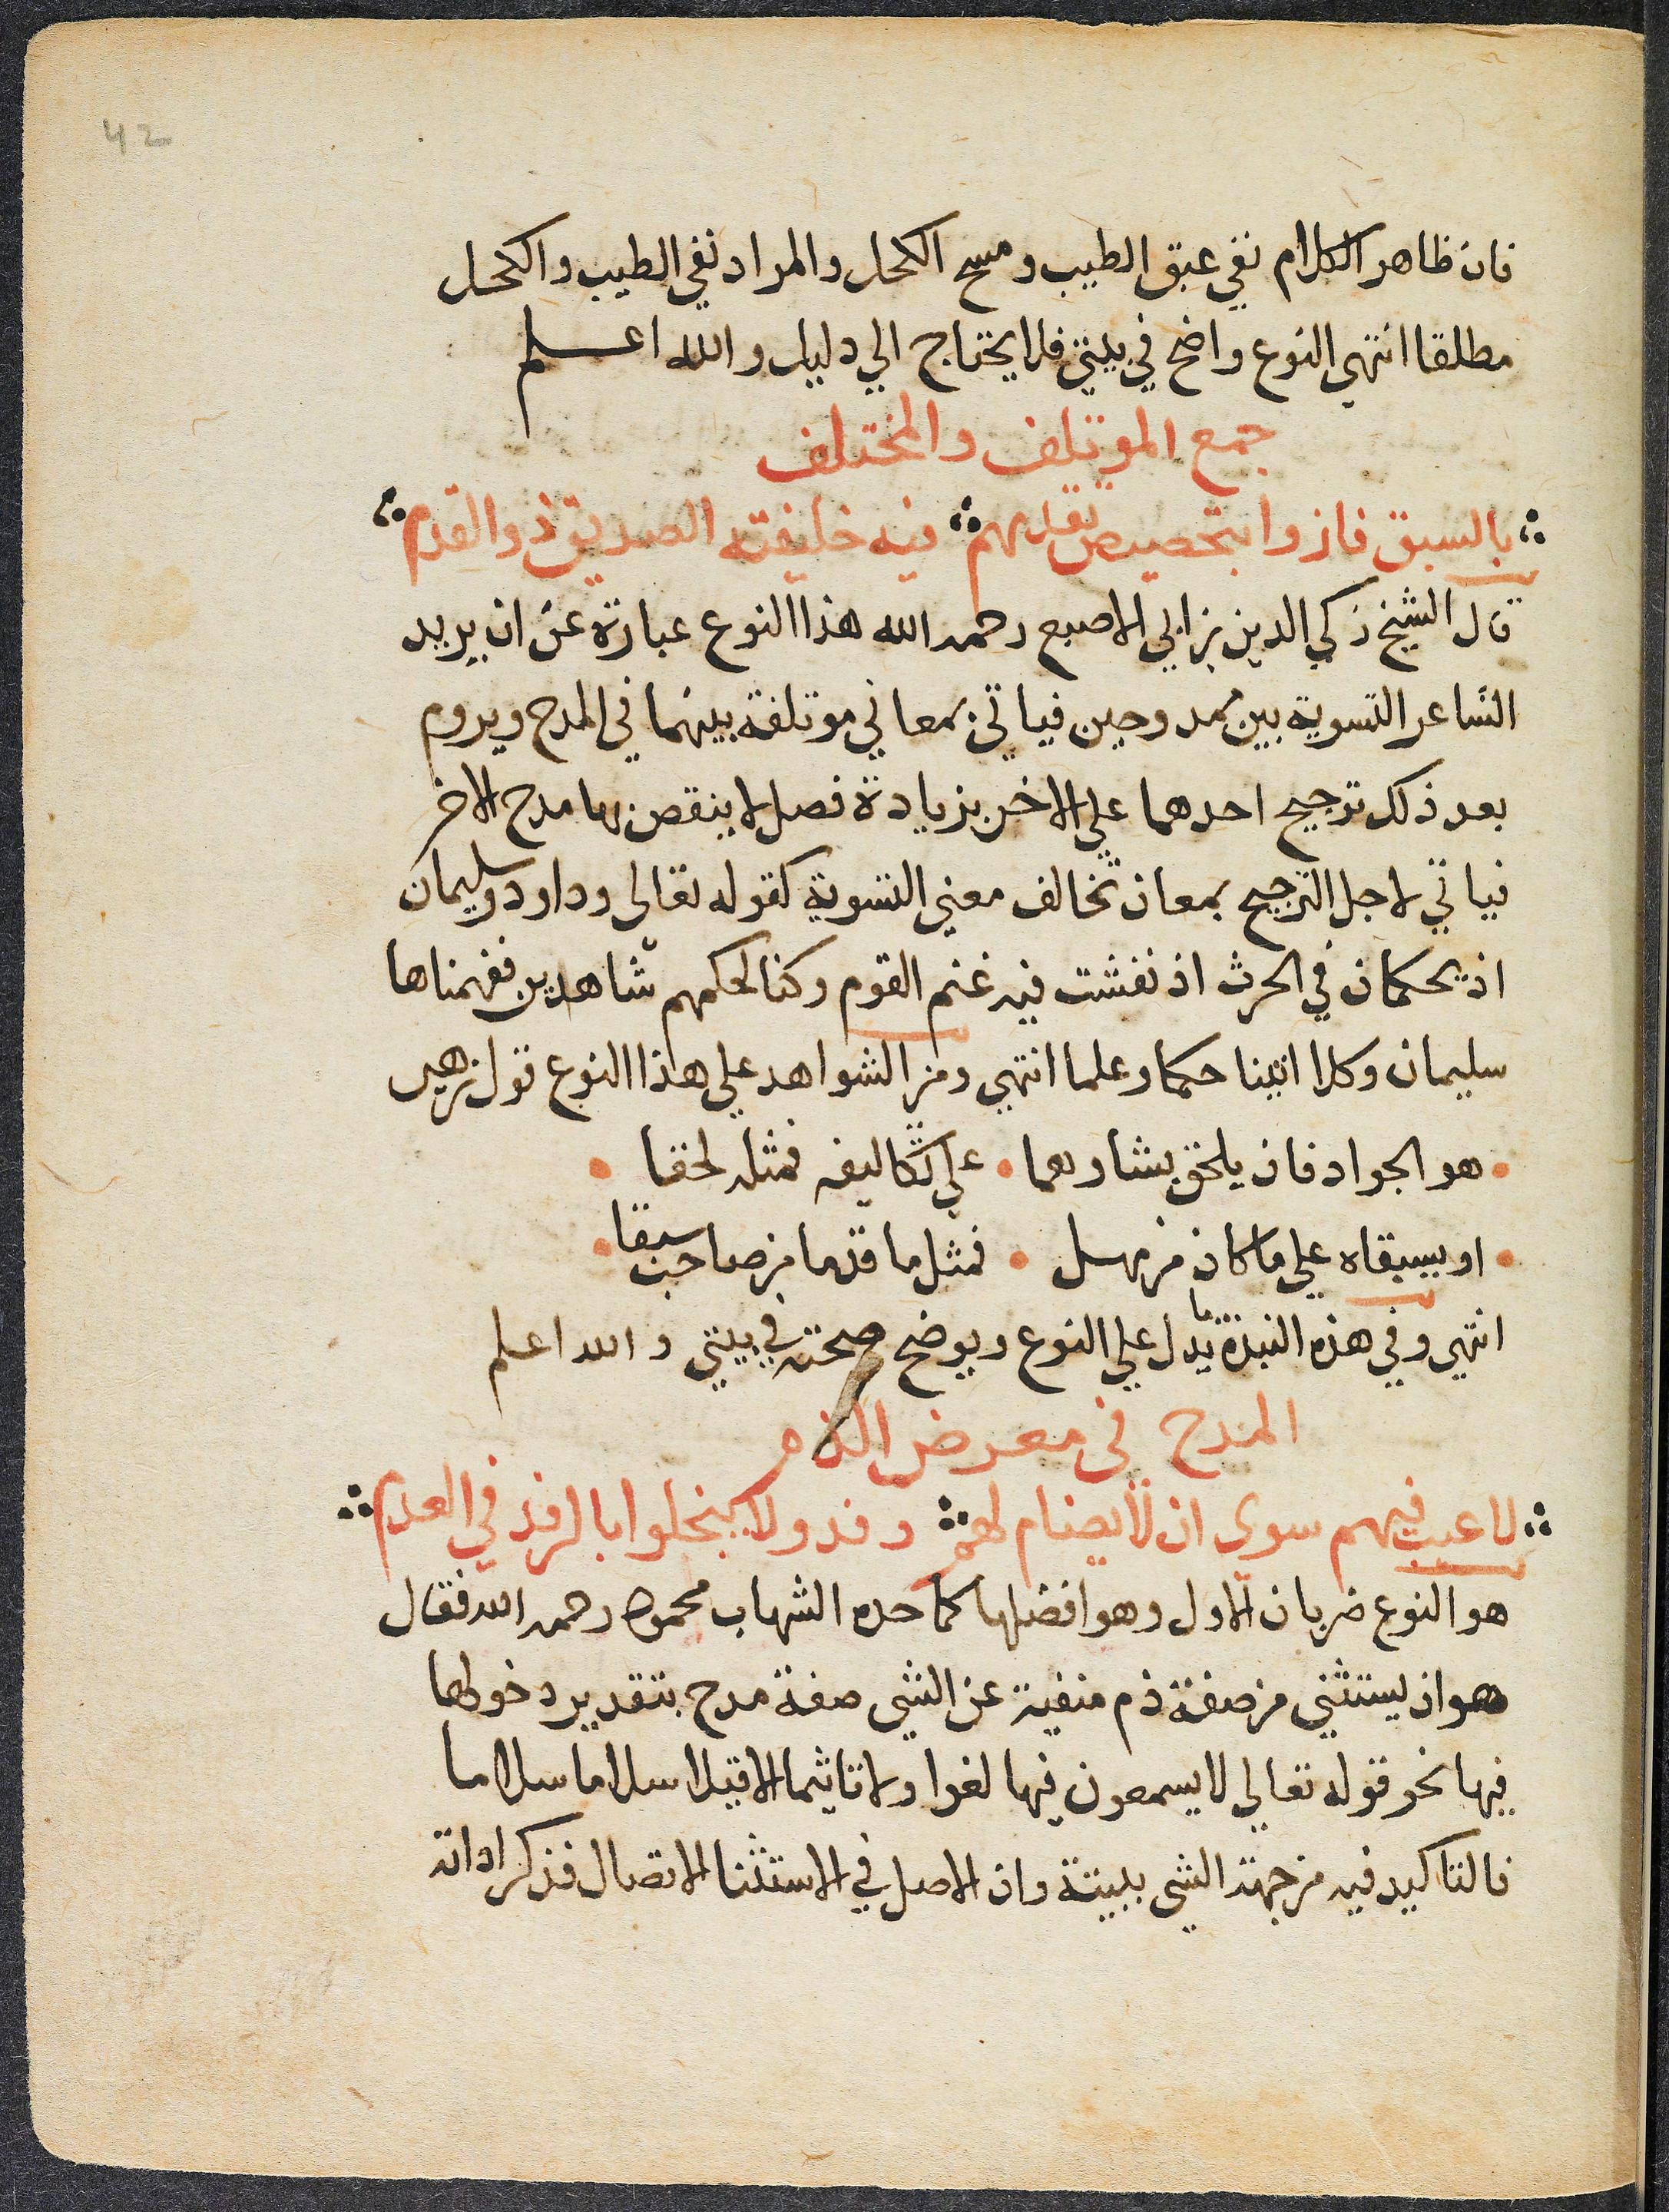 42
فان ظاهر الكلام نفي عبق الطيب ومسح الكحل والمراد نفي الطيب والكحل
مطلقا انتهى النوع واضح في بيتي فلا يحتاج الي دليل والله اعلم
جمع الموتلف والمختلف
بالسبق فازوا بتخصيص تقدمهم فيه خليفته الصديق ذو القدم
قال الشيخ زكي الدين بن ابي الاصبع رحمه الله هذا النوع عبارة عن ان يريد
الشاعر التسوية بين ممدوحين فياتي بمعاني موتلفة بينهما في المدح ويروم
بعد ذلك ترجيح احدهما علي الاخر بزيادة فضل لا ينقص بها مدح الاخر
فياتي لاجل الترجيح بمعان تخالف معني التسوية كقوله تعالى وداود وسليمان
اذ يحكمان في الحرث اذ نفشت فيه غنم القوم وكنا لحكمهم شاهدين ففهمناها
سليمان وكلا اتينا حكما وعلما انتهي ومن الشواهد علي هذا النوع قول زهير
هو الجواد فان يلحق بشاوهما علي تكاليفه فمثله لحقا
او يسبقاه علي ما كان من مهل فمثل ما قدما من صاحب سبقا
انتهي وفي هذه النبذة ما يدل علي النوع ويوضح صحته في بيتي والله اعلم
المدح في معرض الذم
لا عيب فيهم سوي ان لا يضام لهم وفد ولا يبخلوا بالرفد في العدم
هو النوع ضربان الاول وهو افضلها كما حده الشهاب محمود رحمه الله فقال
هو ان يستثني من صفة ذم منفية عن الشي صفة مدح بتقدير دخولها
فيها نحو قوله تعالي لا يسمعون فيها لغوا ولا تاثيما الا قيلا سلاما سلاما
فالتاكيد فيه من جهة الشي ببينة وان الاصل في الاستثنا الاتصال فذكر اداته